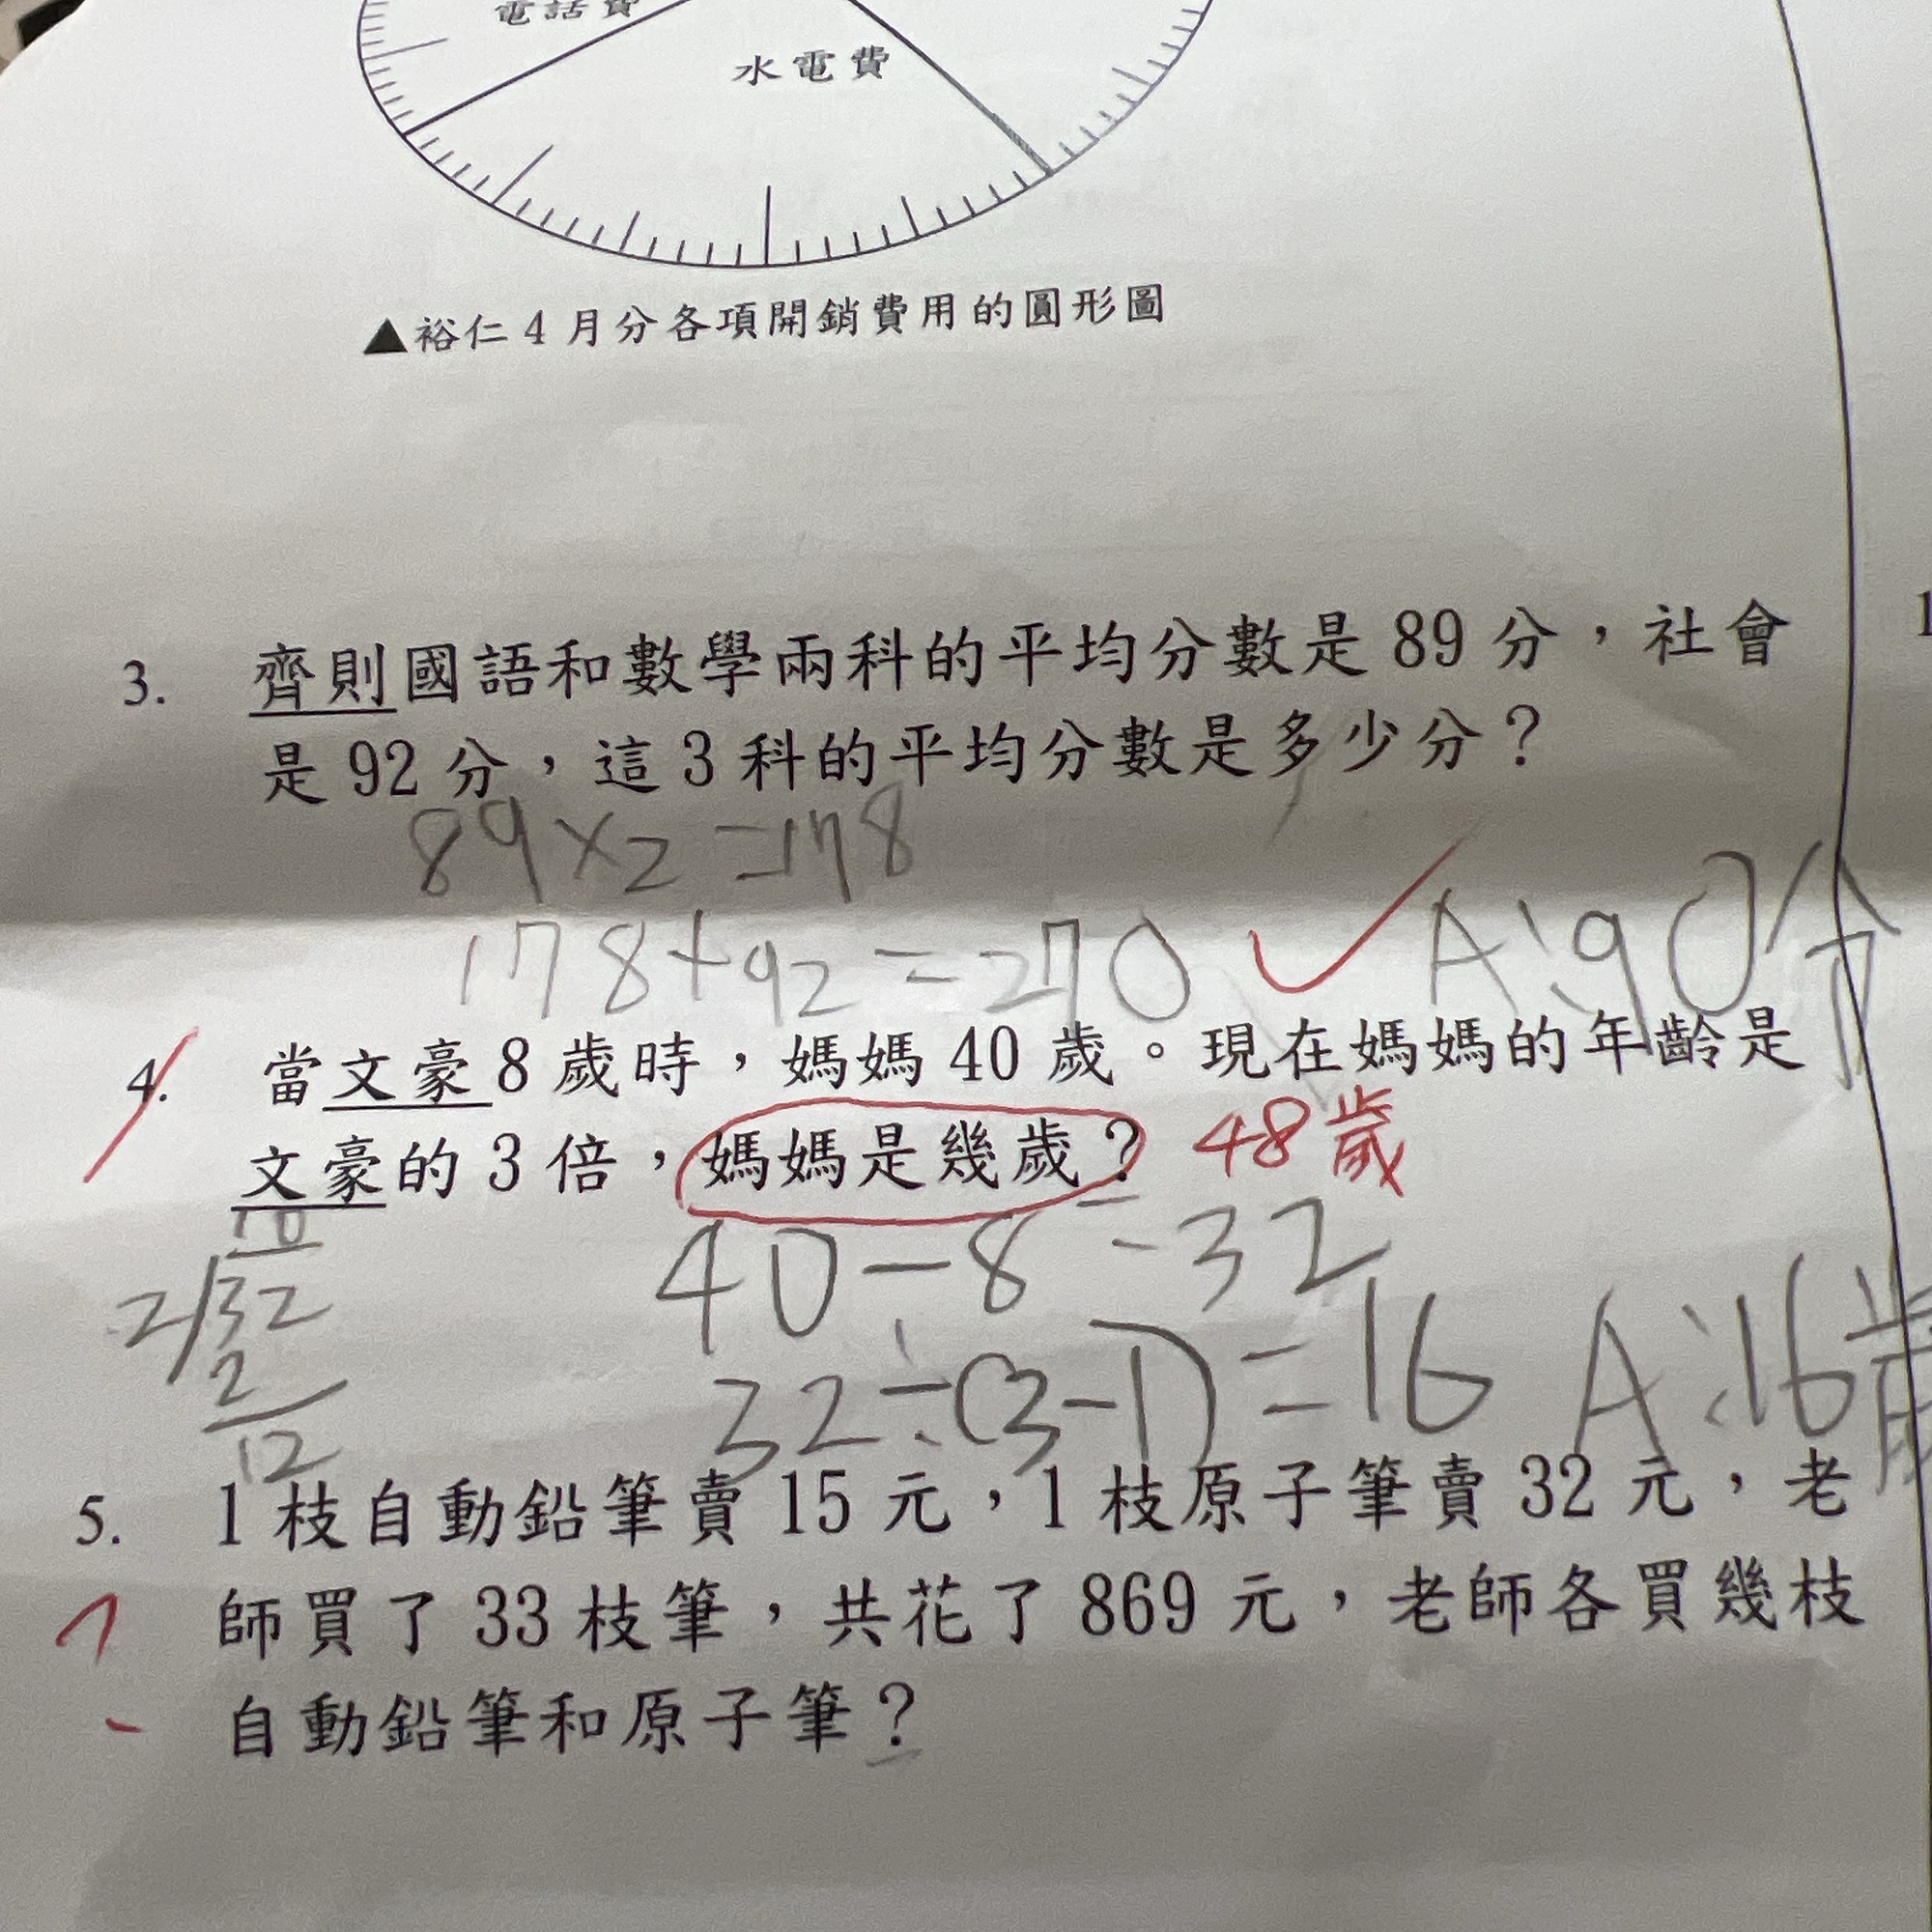 電話費
水電費
▲裕仁4月分各項開銷費用的圓形圖
3. 齊則國語和數學兩科的平均分數是89分，社會
是92分，這3科的平均分數是多少分？
89×2=178
178+92=270 A:90分
4. 當文豪8歲時，媽媽40歲。現在媽媽的年齡是
文豪的3倍，媽媽是幾歲？ 48歲
40-8=32
2 32
2
12
32÷(3-1)=16 A:16歲
5. 1枝自動鉛筆賣15元，1枝原子筆賣32元，老
師買了33枝筆，共花了869元，老師各買幾枝
自動鉛筆和原子筆？